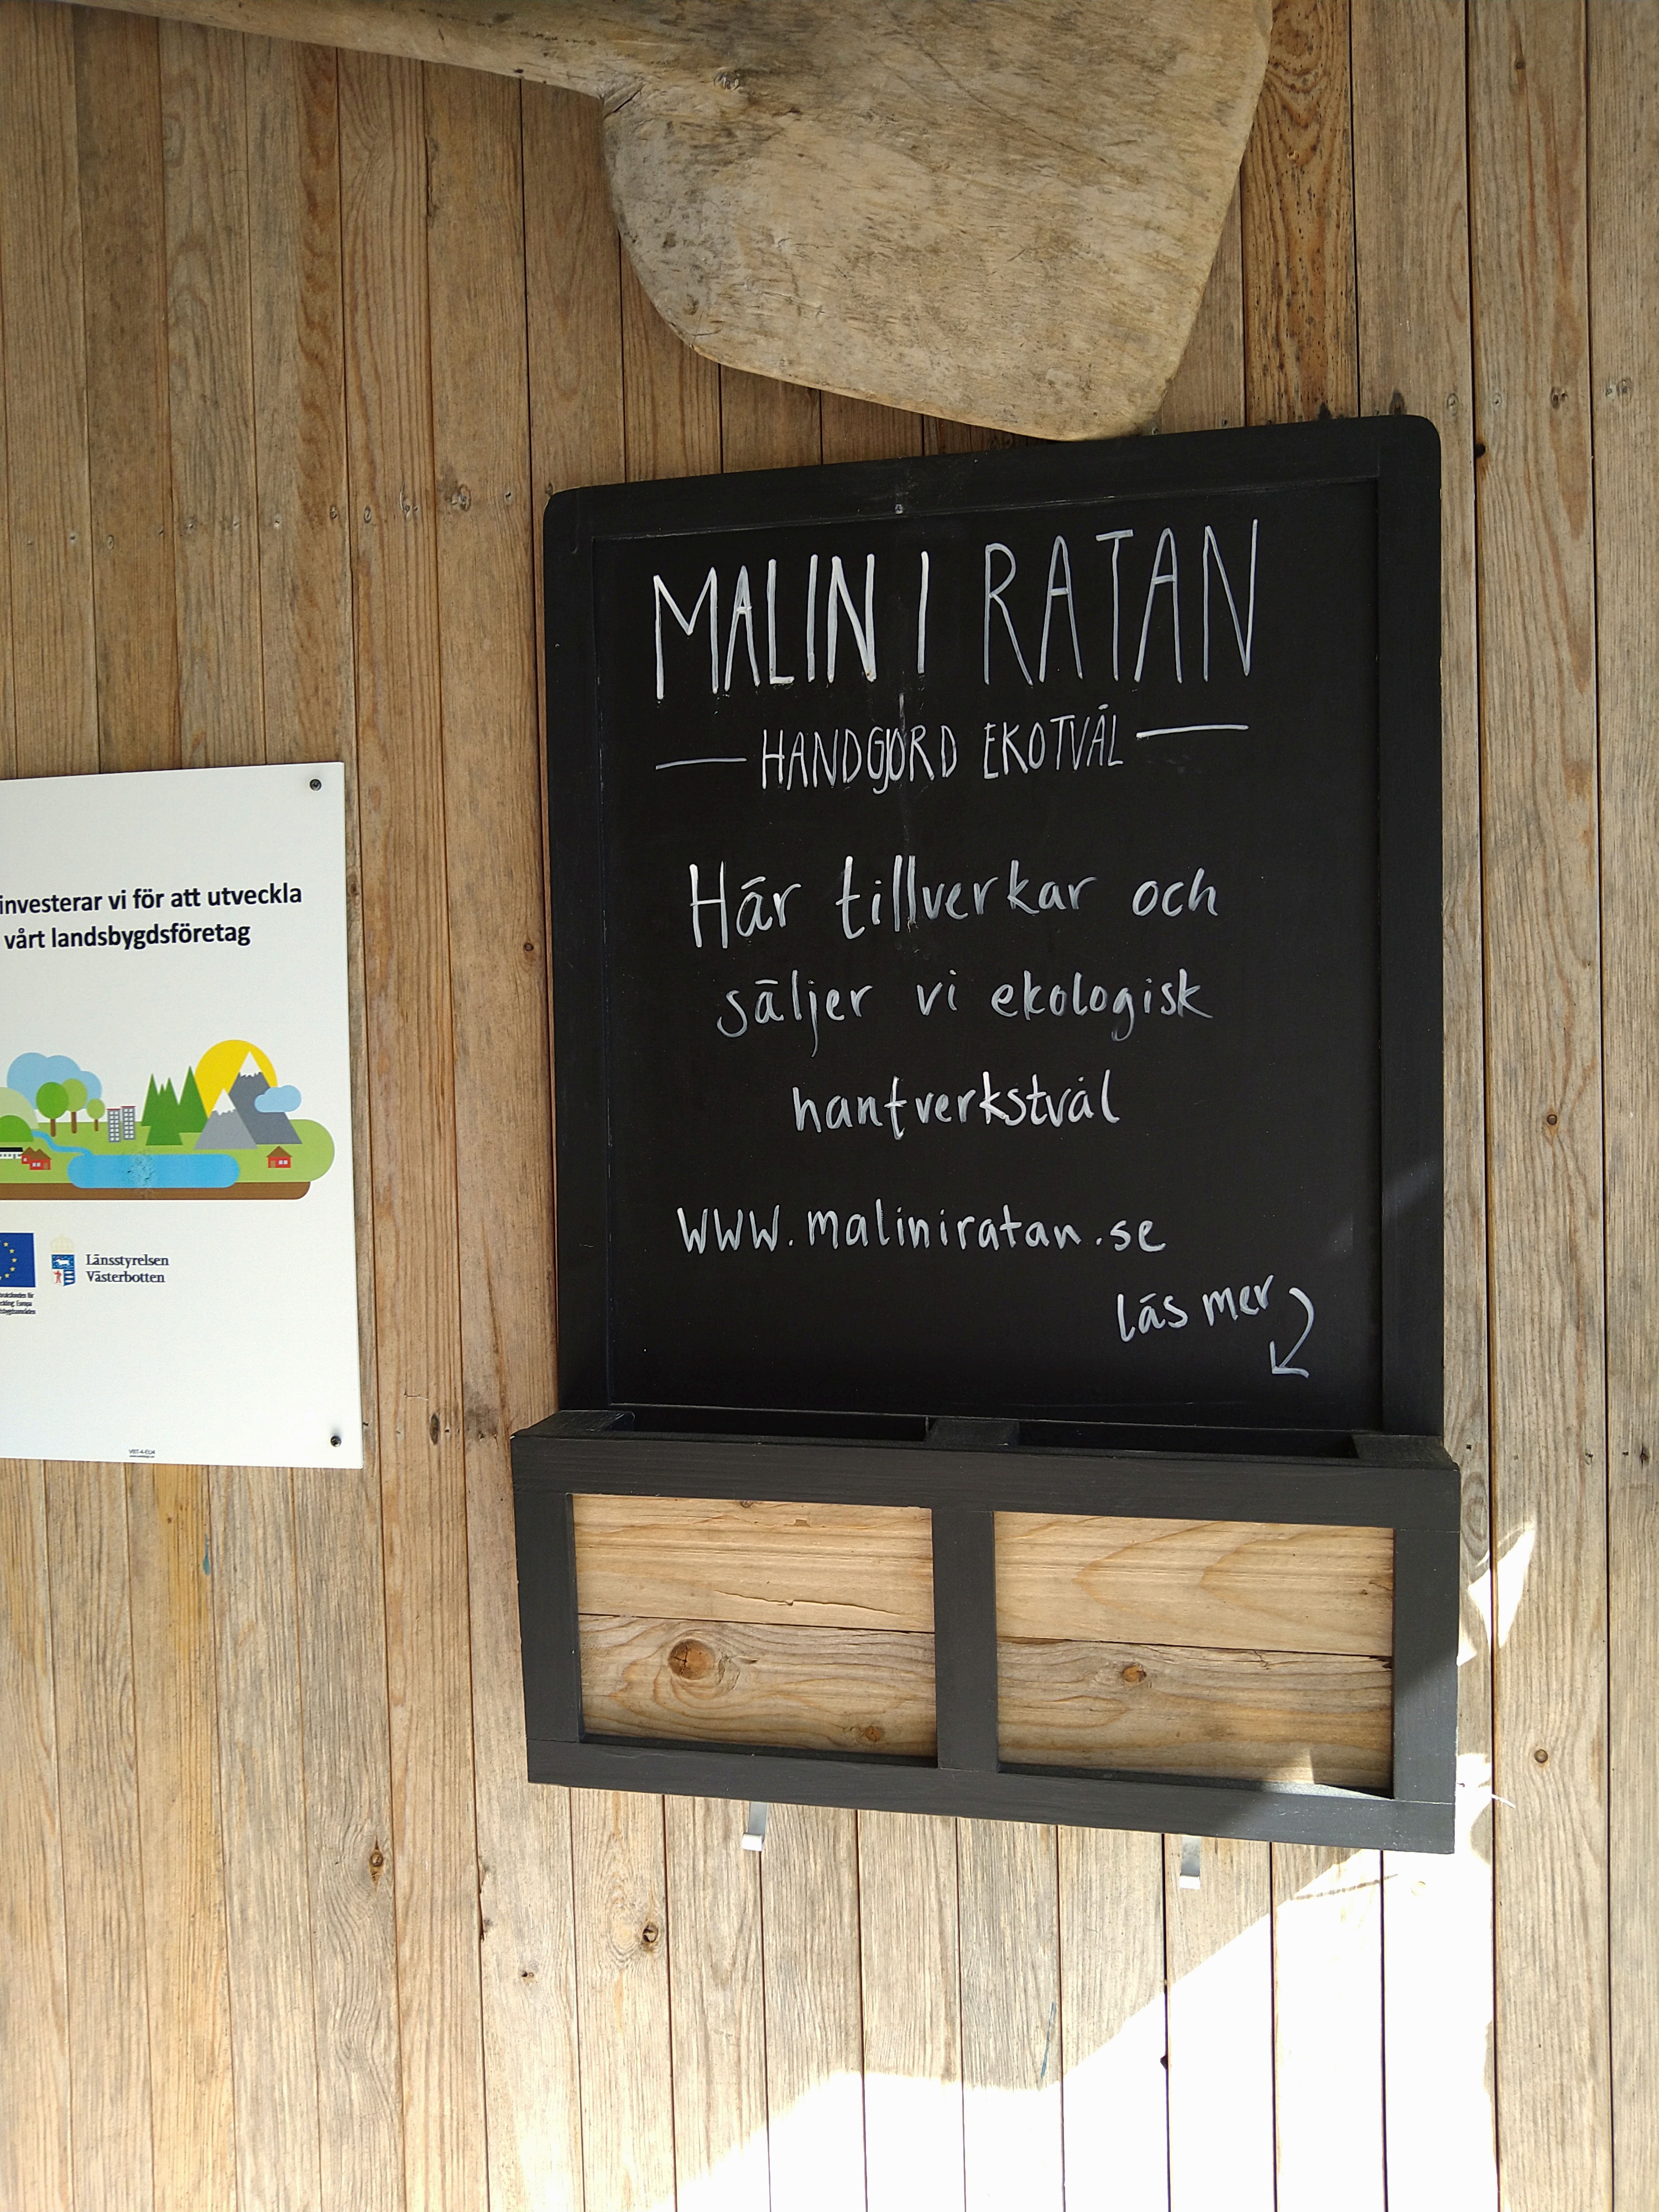 MALIN I RATAN
HANDGJORD EKOTVÅL
Här tillverkar och
säljer vi ekologisk
hantverkstvål
www.maliniratan.se
läs mer
investerar vi för att utveckla
vårt landsbygdsföretag
Länsstyrelsen
Västerbotten